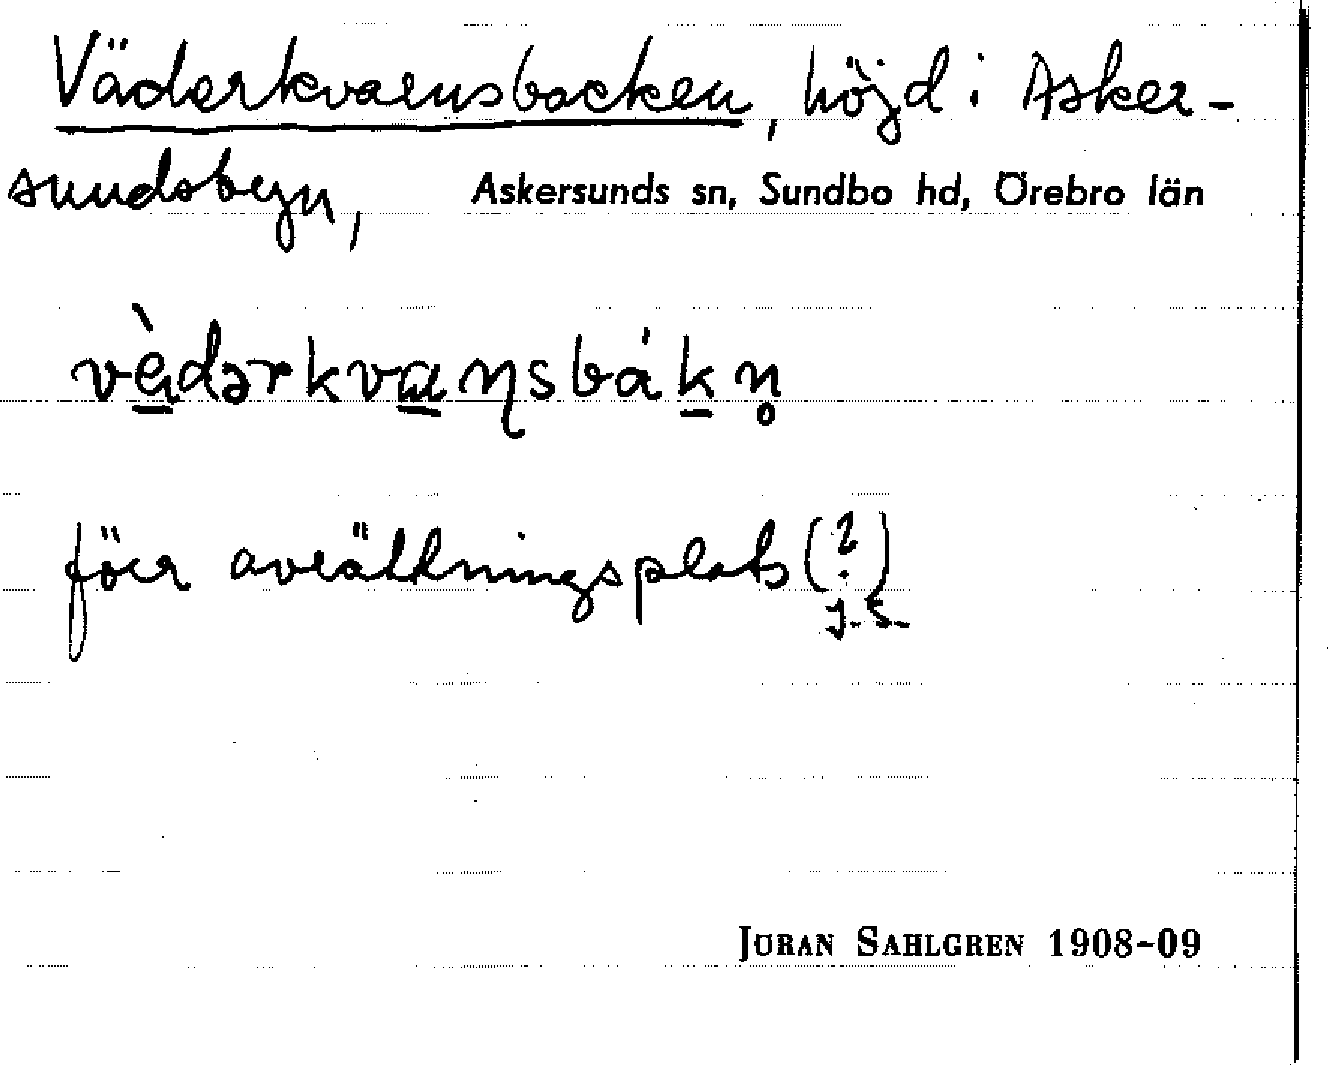 Väderkvarnsbacken, höjd i Asker-
sundsbyn, Askersunds sn, Sundbo hd, Örebro län
vä̀dərkvaɳsbákn̥
förr avrättningsplats (?)
J. S.
JÖRAN SAHLGREN 1908-09